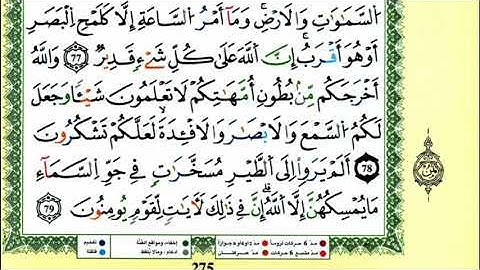 السَّمَٰوَٰتِ وَالَارْضِ وَمَآ أَمْرُ السَّاعَةِ إِلَّا كَلَمْحِ الْبَصَرِ
أَوْ هُوَ أَقْرَبُ إِنَّ اللَّهَ عَلَىٰ كُلِّ شَيْءٍ قَدِيرٌ 77 وَاللَّهُ
أَخْرَجَكُم مِّنۢ بُطُونِ أُمَّهَٰتِكُمْ لَا تَعْلَمُونَ شَيْـٔاً وَجَعَلَ
لَكُمُ السَّمْعَ وَالَابْصَٰرَ وَالَافْـِٕدَةَ لَعَلَّكُمْ تَشْكُرُونَ
78 أَلَمْ يَرَوِاْ اِلَى الطَّيْرِ مُسَخَّرَٰتٍ فِي جَوِّ السَّمَآءِ
مَا يُمْسِكُهُنَّ إِلَّا اللَّهُ إِنَّ فِي ذَٰلِكَ لَأٓيَٰتٍ لِّقَوْمٍ يُومِنُونَ 79
ثمن
مدّ 6 حركات لزوما إخفاء، ومواقع الغنّة تفخيم
مدّ مشبع 6 حركات مدّ حركتان إدغام، وما لا يلفظ قلقلة
275